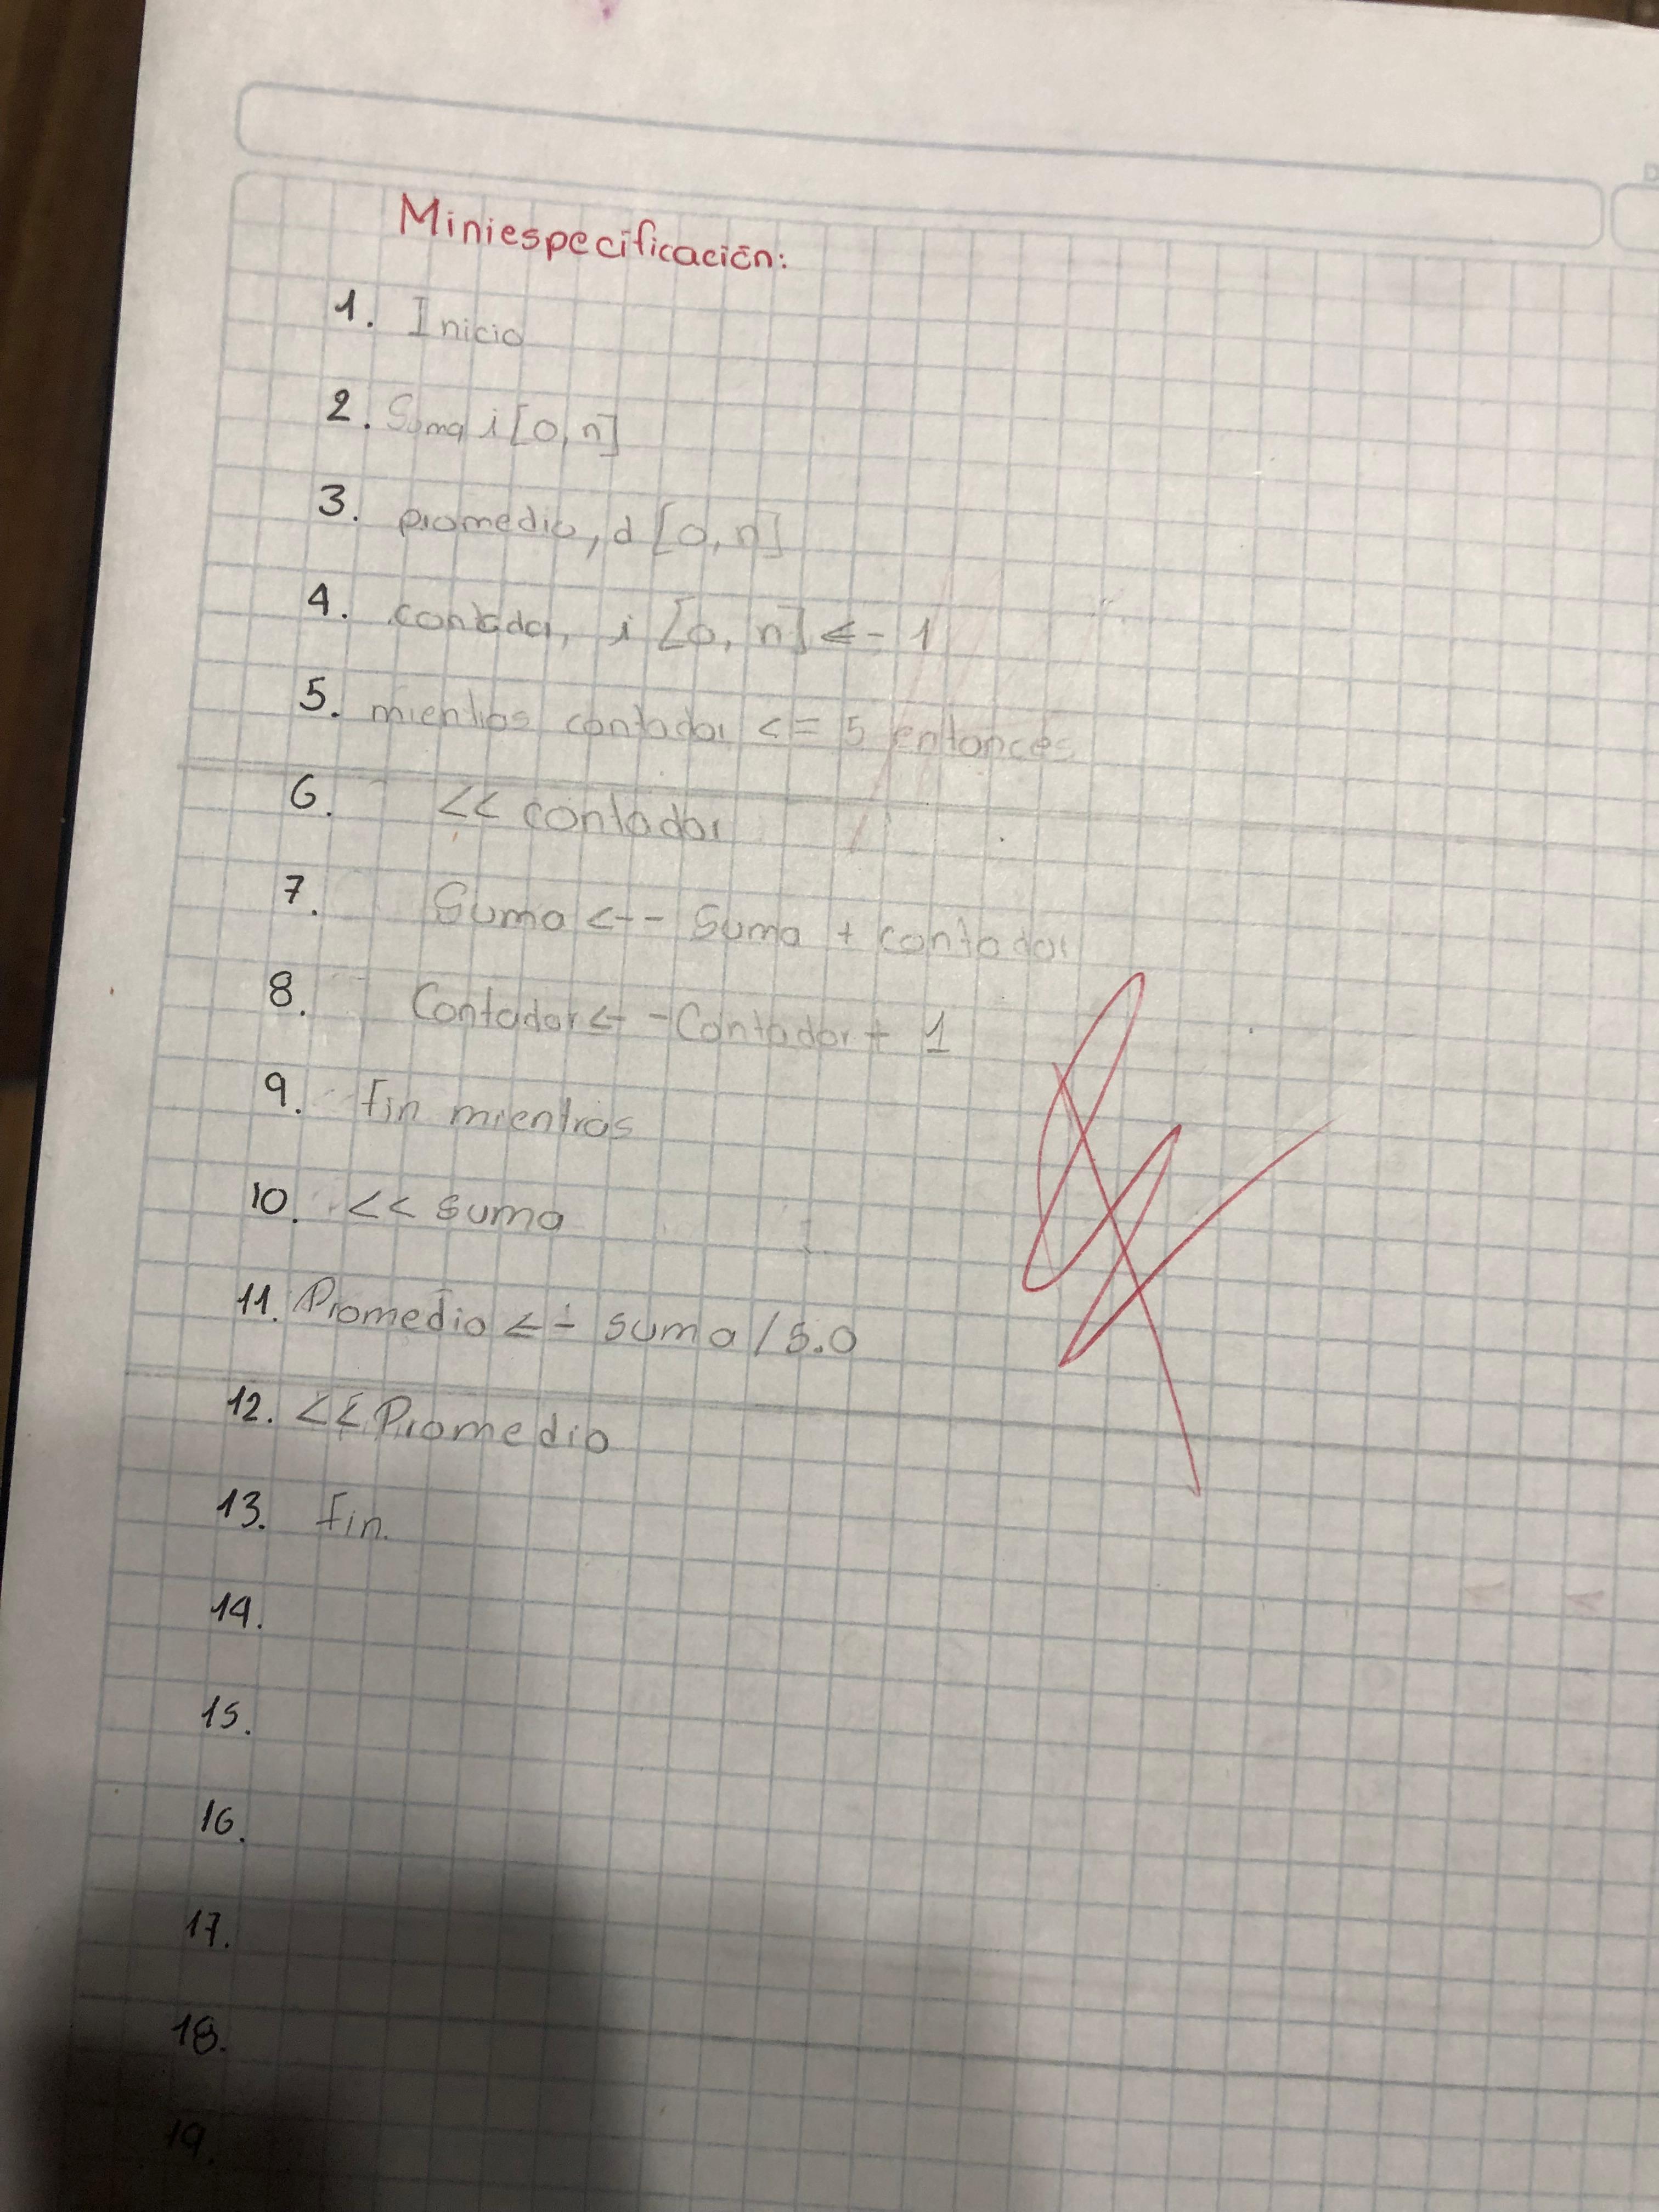 Miniespecificación:
1. Inicio
2. Suma i [0, n]
3. promedio, d [0, n]
4. contador, i [0, n] <- 1
5. mientras contador <= 5 entonces
6. << contador
7. Suma <-- Suma + contador
8. Contador <- - Contador + 1
9. fin mientras
10. << suma
11. Promedio <- suma / 5.0
12. << Promedio
13. fin.
14.
15.
16.
17.
18.
19.